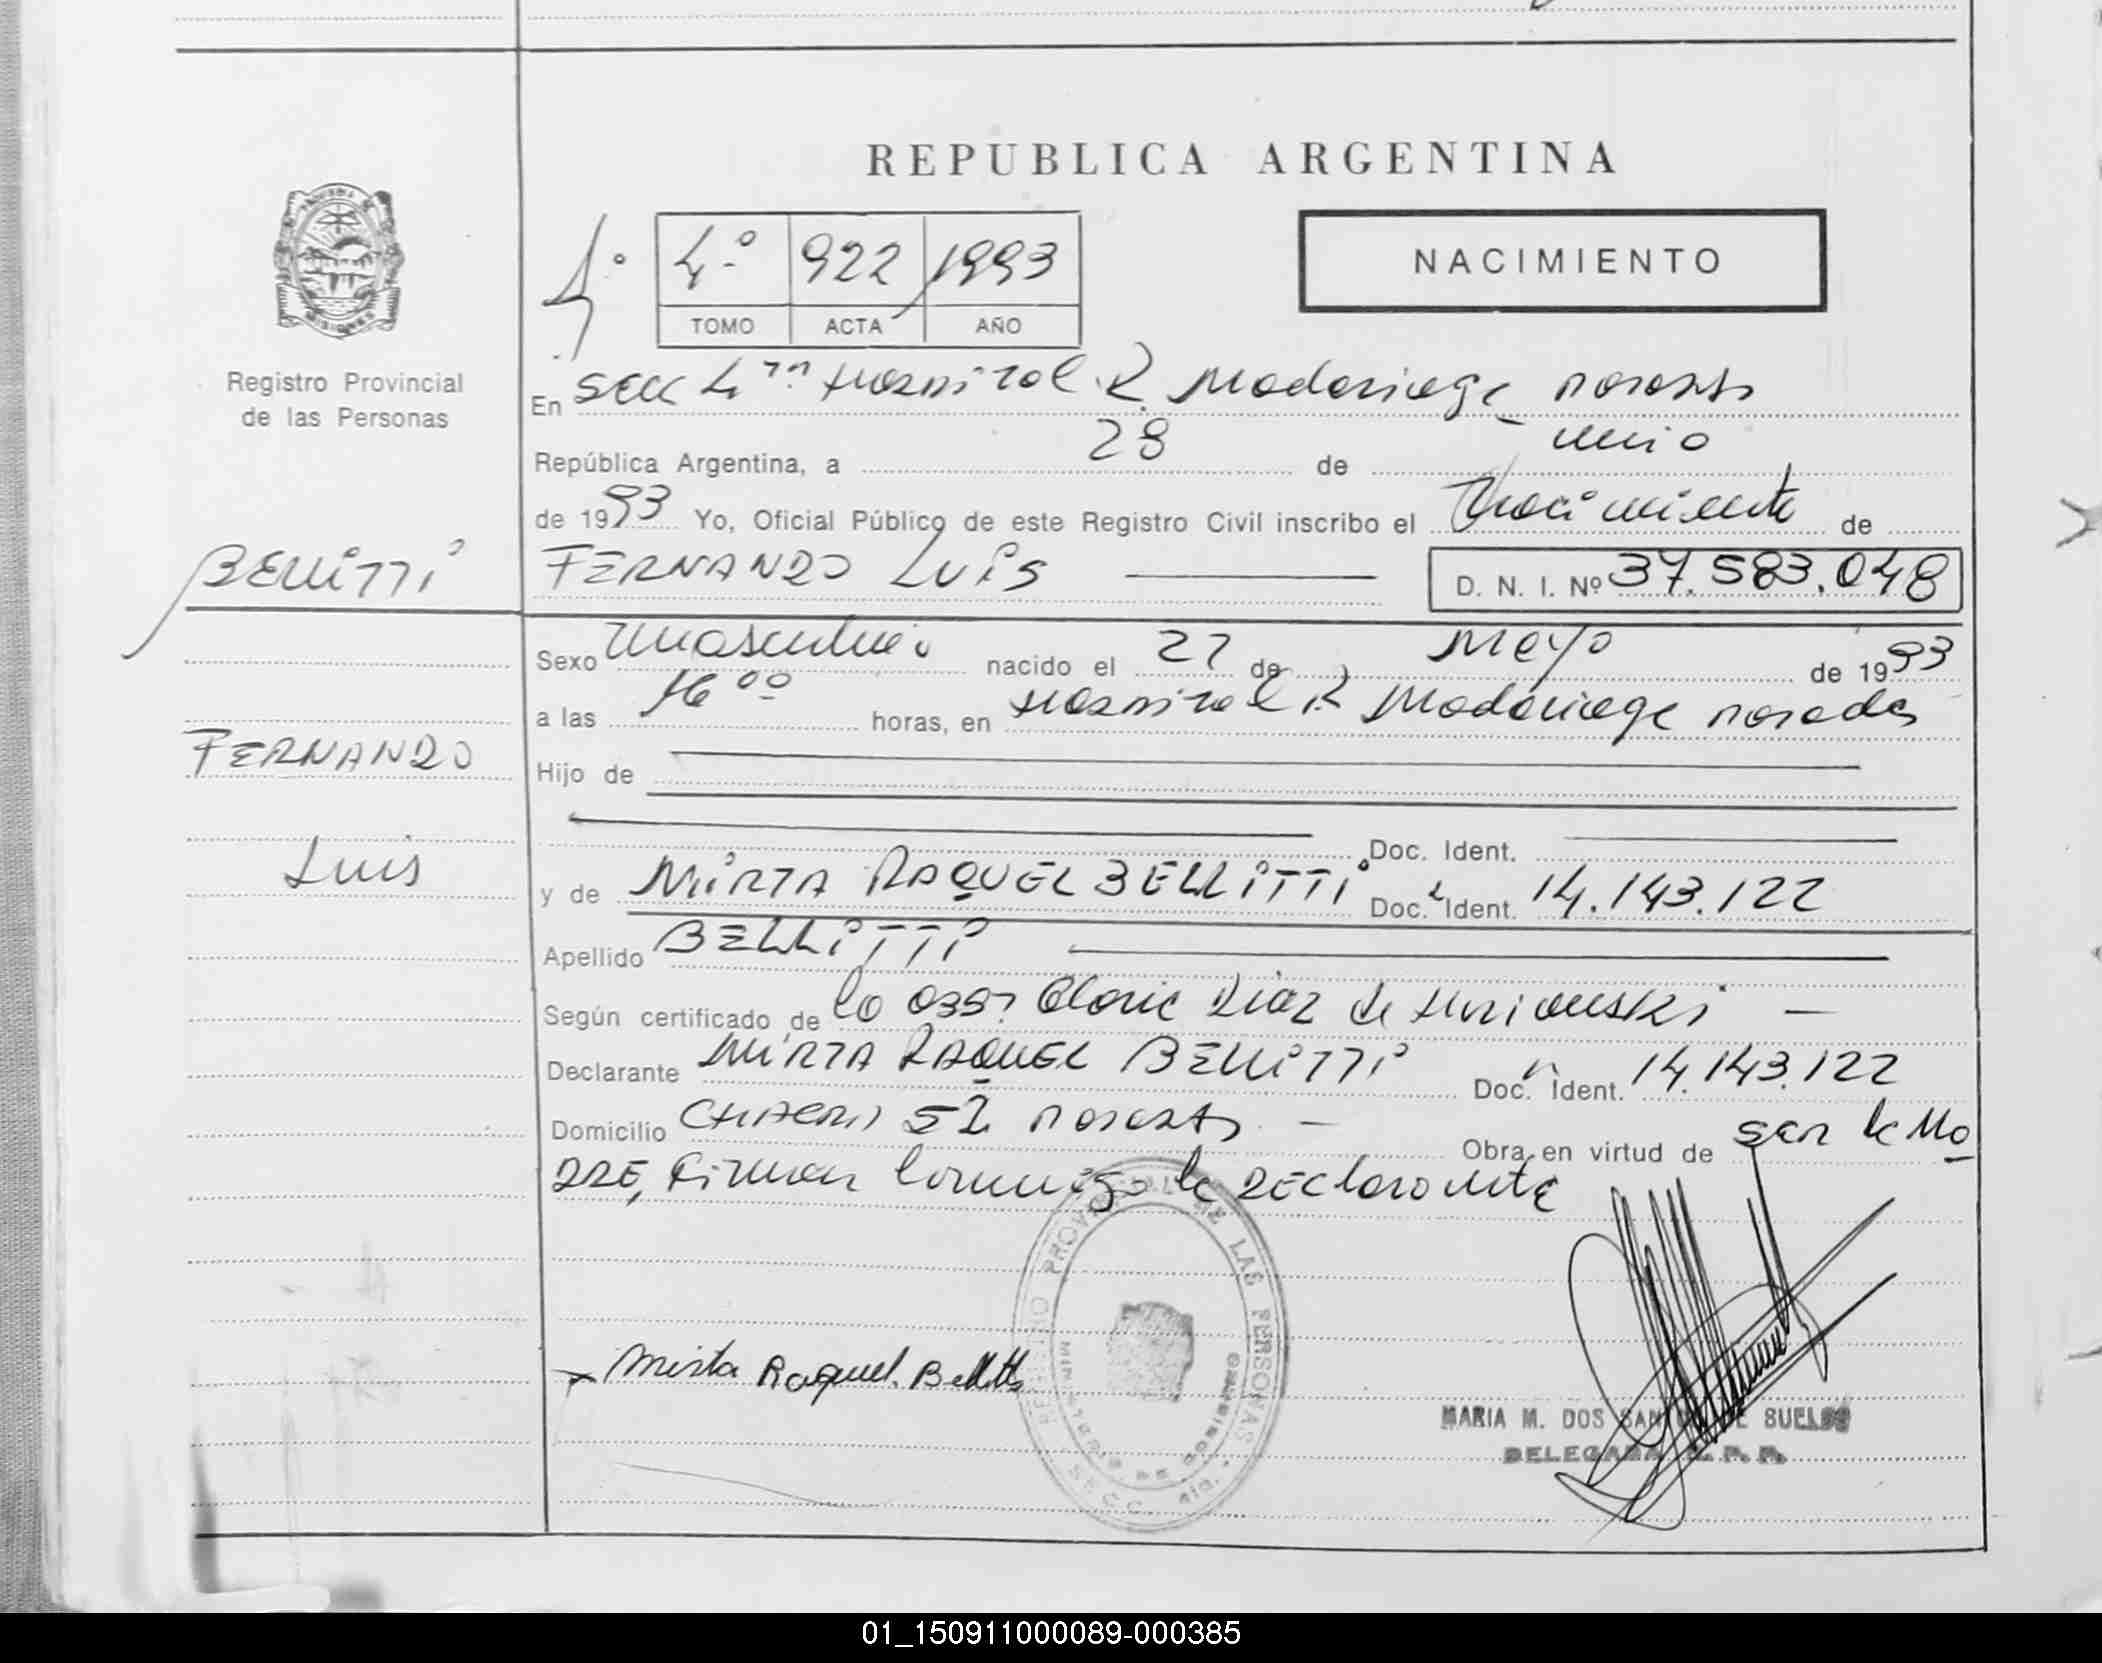 REPUBLICA ARGENTINA
4º
4º 922 1993
TOMO ACTA AÑO
NACIMIENTO
MISIONES
Registro Provincial
de las Personas
En Secc 4ta Hospital R. Madariaga Posadas
República Argentina, a 28 de
de 1993 Yo, Oficial Público de este Registro Civil inscribo el Nacimiento de
BELLITTI
FERNANDO LUIS
D. N. I. Nº 37.583.048
Sexo masculino nacido el 27 de Mayo de 1993
a las 16 00 horas, en Hospital R Madariaga Posadas
FERNANDO
Hijo de
Doc. Ident.
LUIS
y de MIRTA RAQUEL BELLITTI Doc. Ident. 14.143.122
Apellido BELLITTI
Según certificado de la Obst Gloria Diaz de
Declarante MIRTA RAQUEL BELLITTI Doc. Ident. 14.143.122
Domicilio 52 Posadas
Obra en virtud de ser la Ma
DRE, Firman conmigo la DEclarante
REGISTRO PROVINCIAL DE LAS PERSONAS
MINISTERIO DE GOBIERNO
SECC.
Mirta Raquel Bellitti
MARIA M. DOS SANTOS DE SUELOS
DELEGADA R. P. P.
01_150911000089-000385